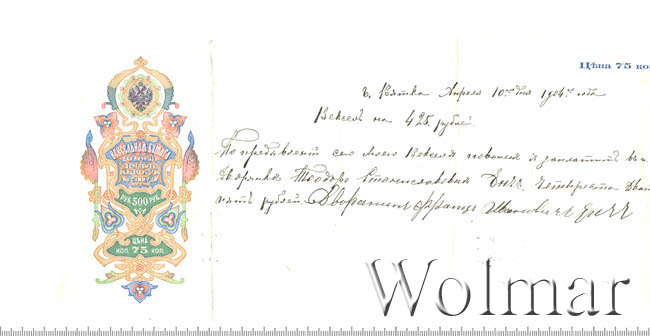 Цѣна 75 коп
г. Вятка Апрѣля 10го дня 1904го года
Вексель на 425 рублей.
ВЕКСЕЛЬНАЯ БУМАГА
По предъявленiи сего моего Векселя повиненъ я заплатить
дворянкѣ Теодорѣ Станиславовнѣ Четыреста Двад
пять рублей. Дворянинъ Францъ Ивановичъ
РУБ 500 РУБ
ЦѢНА
КОП. 75 КОП.
Wolmar